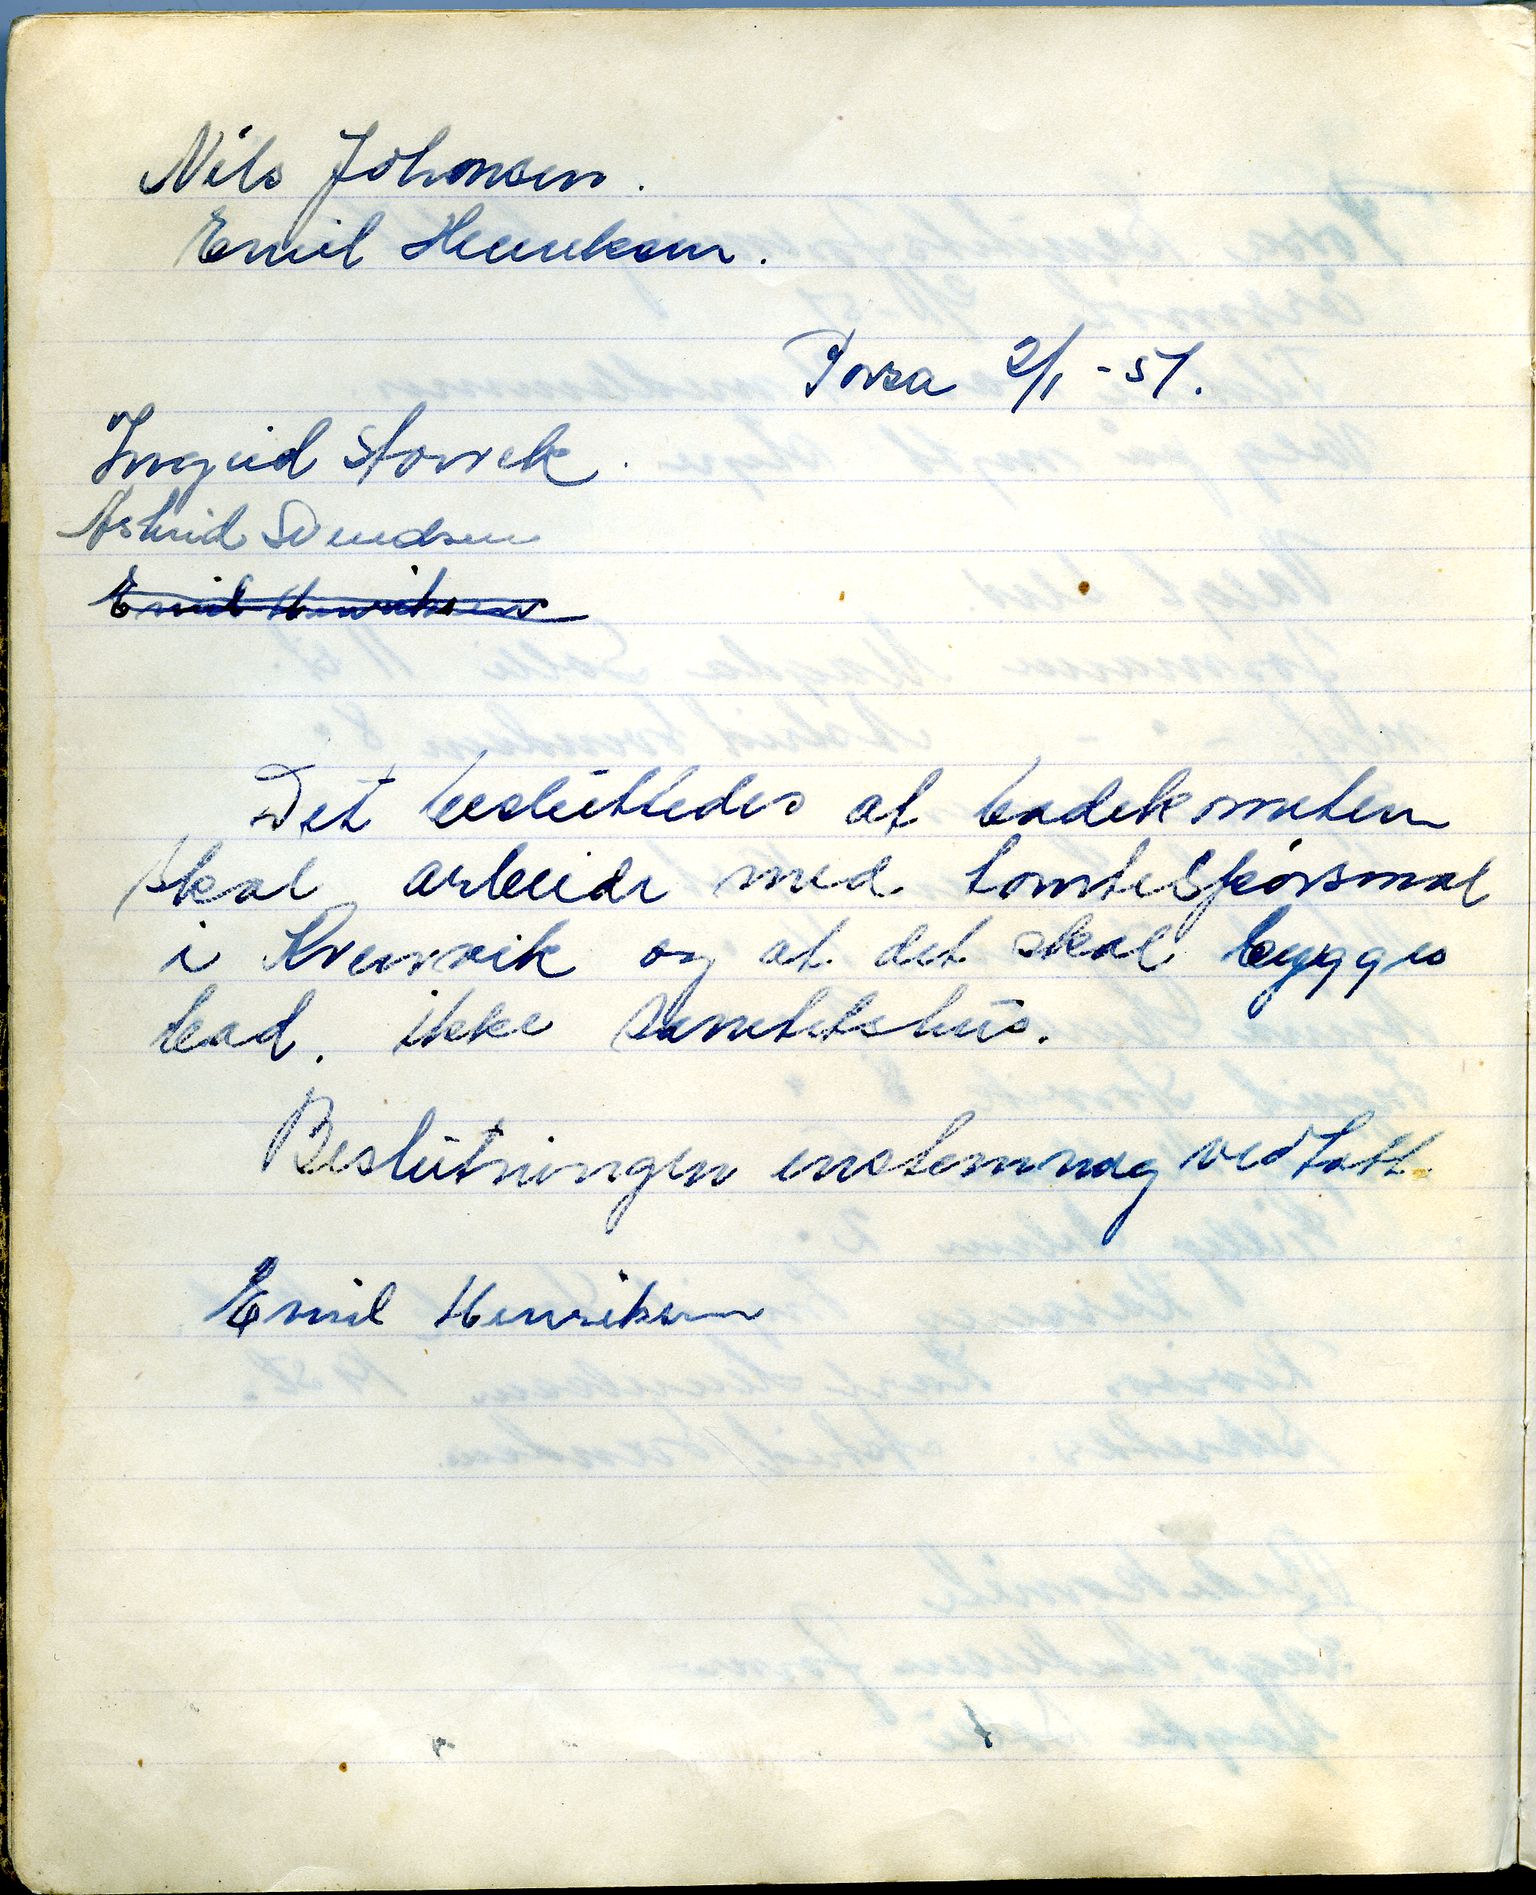 Nils Johansen.
Emil Henriksen.
Porsa 2/1 - 51.
Ingrid Storvik.
Astrid Svendsen
Emil Henriksen
Det besluttedes at badekomiteen
skal arbeide med tomtespørsmål
i Kvenvik og at det skal bygges
bad. ikke samitetshus.
Beslutningen enstemmig vedtatt.
Emil Henriksen